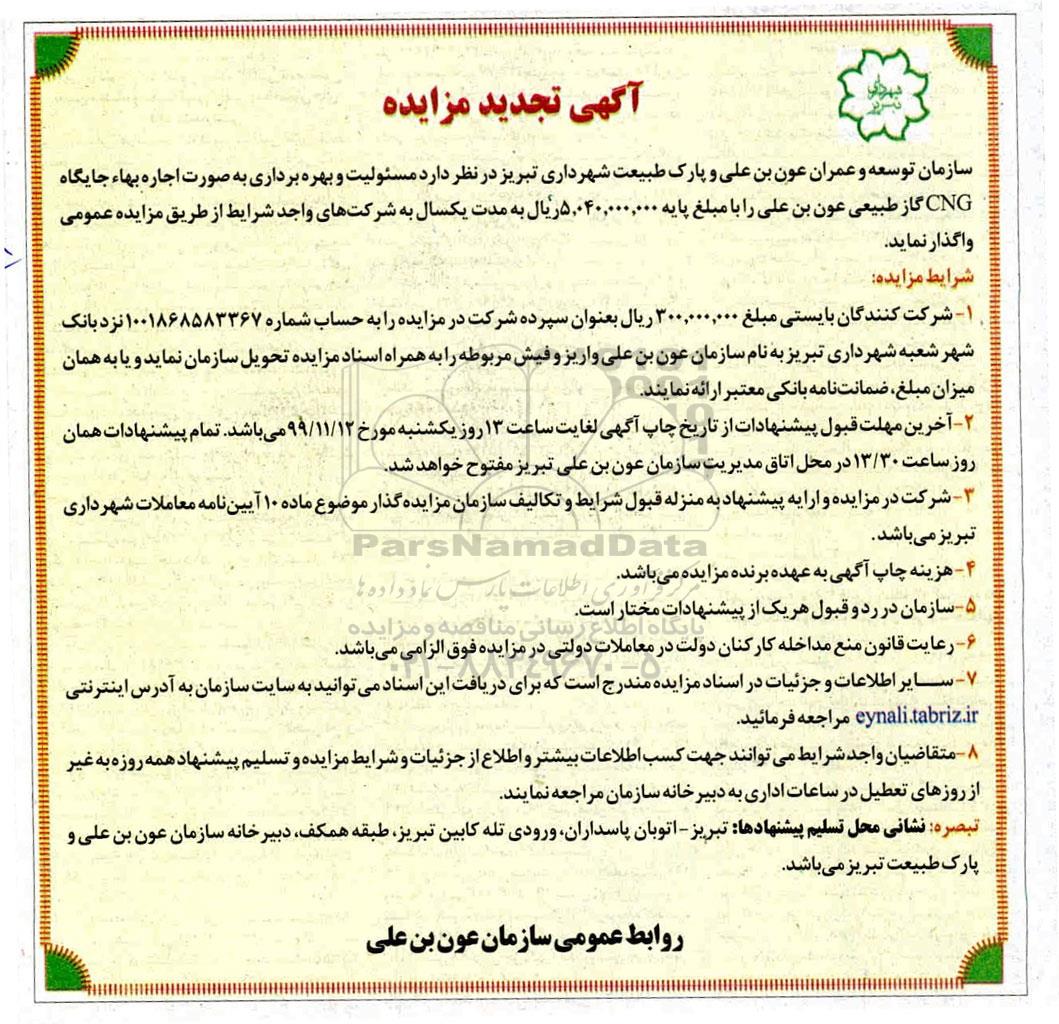 شهرداری
تبریز
آگهی تجدید مزایده
سازمان توسعه و عمران عون بن علی و پارک طبیعت شهرداری تبریز در نظر دارد مسئولیت و بهره برداری به صورت اجاره بهاء جایگاه
CNG گاز طبیعی عون بن علی را با مبلغ پایه ۵,۰۴۰,۰۰۰,۰۰۰ریال به مدت یکسال به شرکت‌های واجد شرایط از طریق مزایده عمومی
واگذار نماید.
شرایط مزایده:
۱- شرکت کنندگان بایستی مبلغ ۳۰۰,۰۰۰,۰۰۰ ریال بعنوان سپرده شرکت در مزایده را به حساب شماره ۱۰۰۱۸۶۸۵۸۳۳۶۷ نزد بانک
شهر شعبه شهرداری تبریز به نام سازمان عون بن علی واریز و فیش مربوطه را به همراه اسناد مزایده تحویل سازمان نماید و یا به همان
میزان مبلغ، ضمانت‌نامه بانکی معتبر ارائه نمایند.
۲- آخرین مهلت قبول پیشنهادات از تاریخ چاپ آگهی لغایت ساعت ۱۳ روز یکشنبه مورخ ۹۹/۱۱/۱۲ می‌باشد. تمام پیشنهادات همان
روز ساعت ۱۳/۳۰ در محل اتاق مدیریت سازمان عون بن علی تبریز مفتوح خواهد شد.
۳- شرکت در مزایده و ارایه پیشنهاد به منزله قبول شرایط و تکالیف سازمان مزایده‌گذار موضوع ماده ۱۰ آیین‌نامه معاملات شهرداری
تبریز می‌باشد.
ParsNamadData
۴- هزینه چاپ آگهی به عهده برنده مزایده می‌باشد.
مرکز فرآوری اطلاعات پارس نماد داده ها
۵-سازمان در رد و قبول هر یک از پیشنهادات مختار است.
پایگاه اطلاع رسانی مناقصه و مزایده
۶- رعایت قانون منع مداخله کارکنان دولت در معاملات دولتی در مزایده فوق الزامی می‌باشد.
۰۲۱-۸۸۳۴۹۶۷۰-۵
۷- سایر اطلاعات و جزئیات در اسناد مزایده مندرج است که برای دریافت این اسناد می‌توانید به سایت سازمان به آدرس اینترنتی
eynali.tabriz.ir مراجعه فرمائید.
۸-متقاضیان واجد شرایط می توانند جهت کسب اطلاعات بیشتر و اطلاع از جزئیات و شرایط مزایده و تسلیم پیشنهاد همه روزه به غیر
از روزهای تعطیل در ساعات اداری به دبیرخانه سازمان مراجعه نمایند.
تبصره: نشانی محل تسلیم پیشنهادها: تبریز - اتوبان پاسداران، ورودی تله کابین تبریز، طبقه همکف، دبیرخانه سازمان عون بن علی و
پارک طبیعت تبریز می‌باشد.
روابط عمومی سازمان عون بن علی